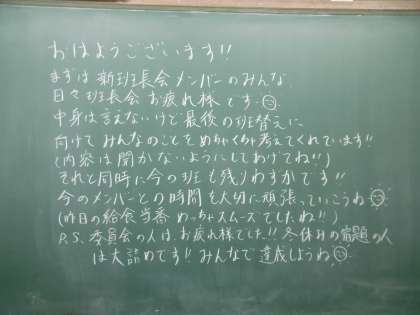 おはようございます!!
まずは新班長会メンバーのみんな、
日々班長会お疲れ様です
中身は言えないけど最後の班替えに
向けてみんなのことをめちゃくちゃ考えてくれています!!
(内容は聞かないようにしてあげてね!!)
それと同時に今の班も残りわずかです!!
今のメンバーとの時間も大切に頑張っていこうね
(昨日の給食当番めっちゃスムーズでしたね!!)
P.S. 委員会の人は、お疲れ様でした!! 冬休みの宿題の人
は大詰めです!! みんなで達成しようね